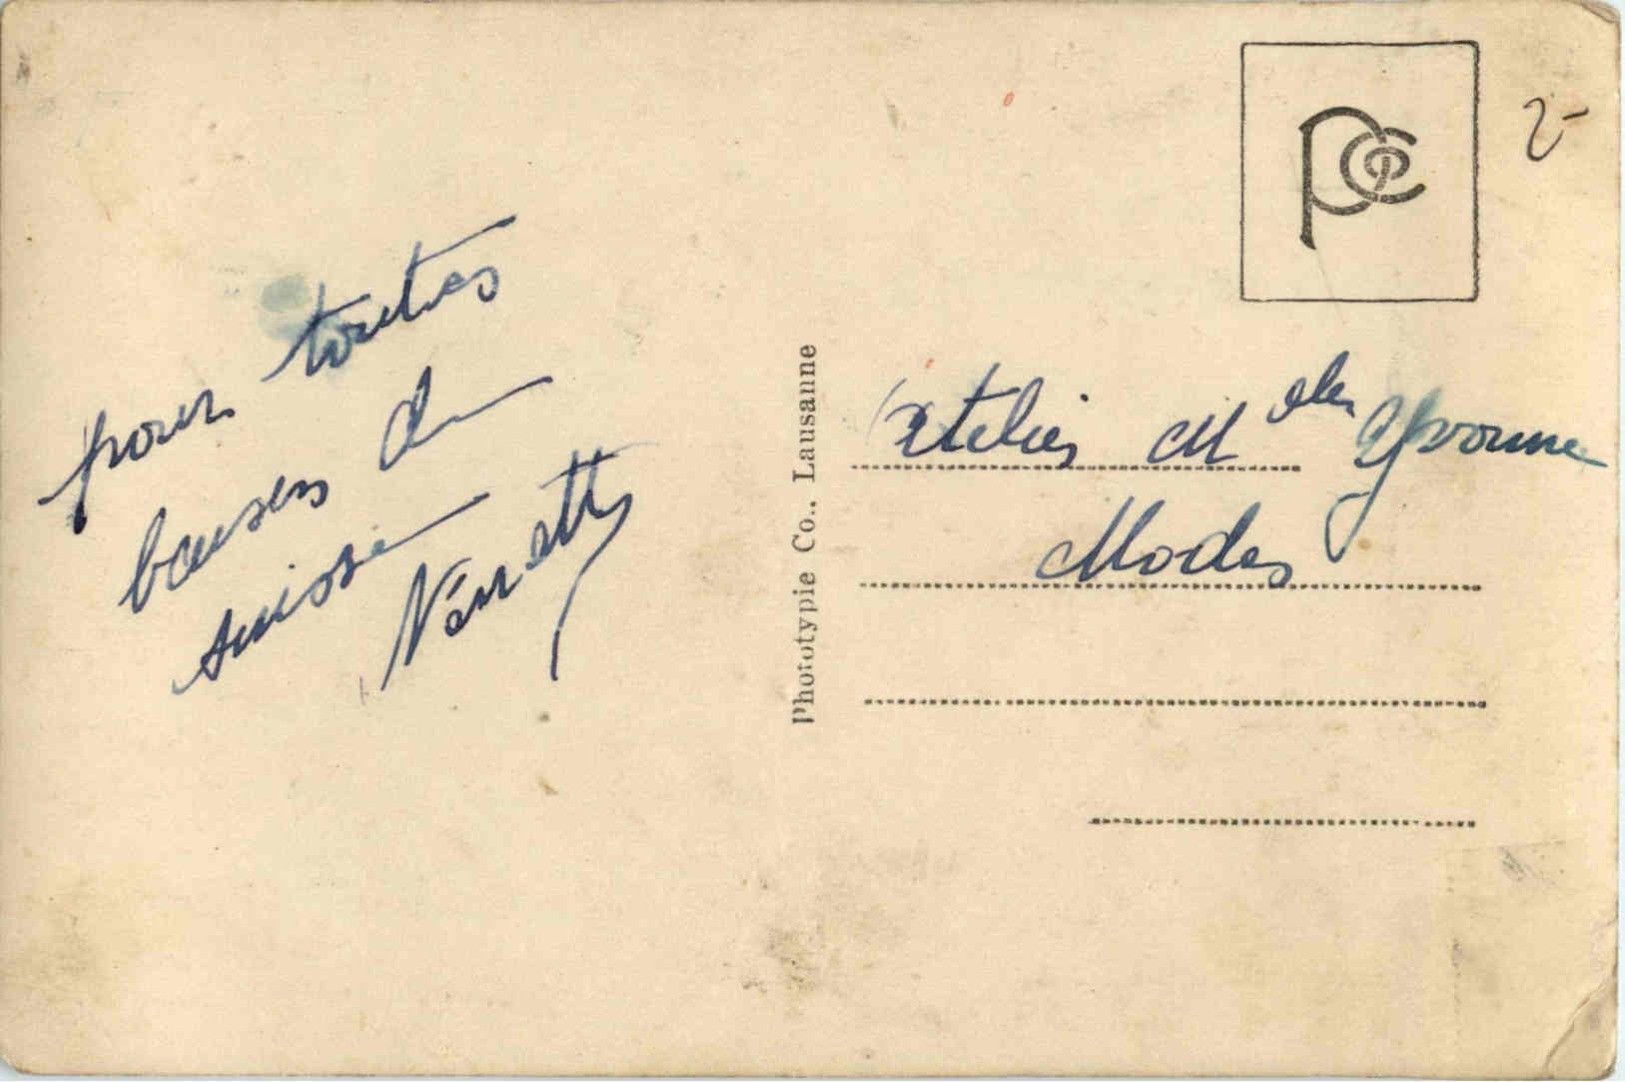 pour toutes
baisers de
suisse
Phototypie Co., Lausanne
PCo
2-
Atelier M elle Yvonne
Modes